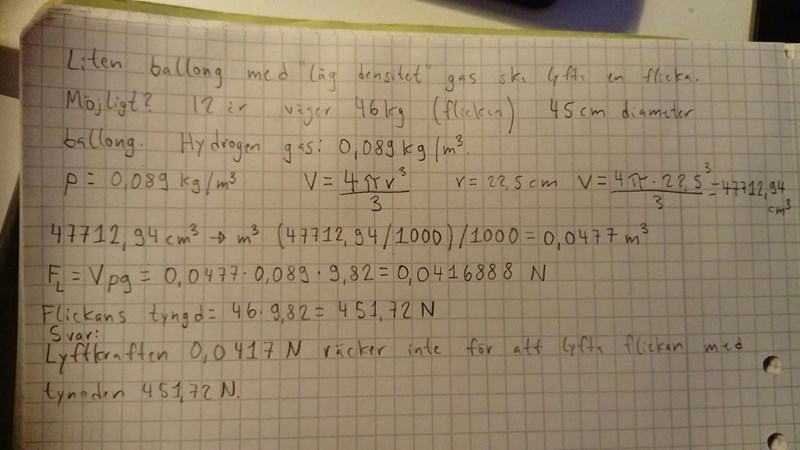 Liten ballong med "låg densitet" gas ska lyfta en flicka.
Möjligt? 12 år väger 46 kg (flickan) 45 cm diameter
ballong. Hydrogen gas: 0,089 kg/m³.
ρ = 0,089 kg/m³ V = 4πr³/3 r = 22,5 cm V = 4π·22,5³/3 = 47712,94 cm³
47712,94 cm³ → m³ (47712,94/1000)/1000 = 0,0477 m³
F_L = Vρg = 0,0477 · 0,089 · 9,82 = 0,0416888 N
Flickans tyngd = 46 · 9,82 = 451,72 N
Svar:
Lyftkraften 0,0417 N räcker inte för att lyfta flickan med
tyngden 451,72 N.